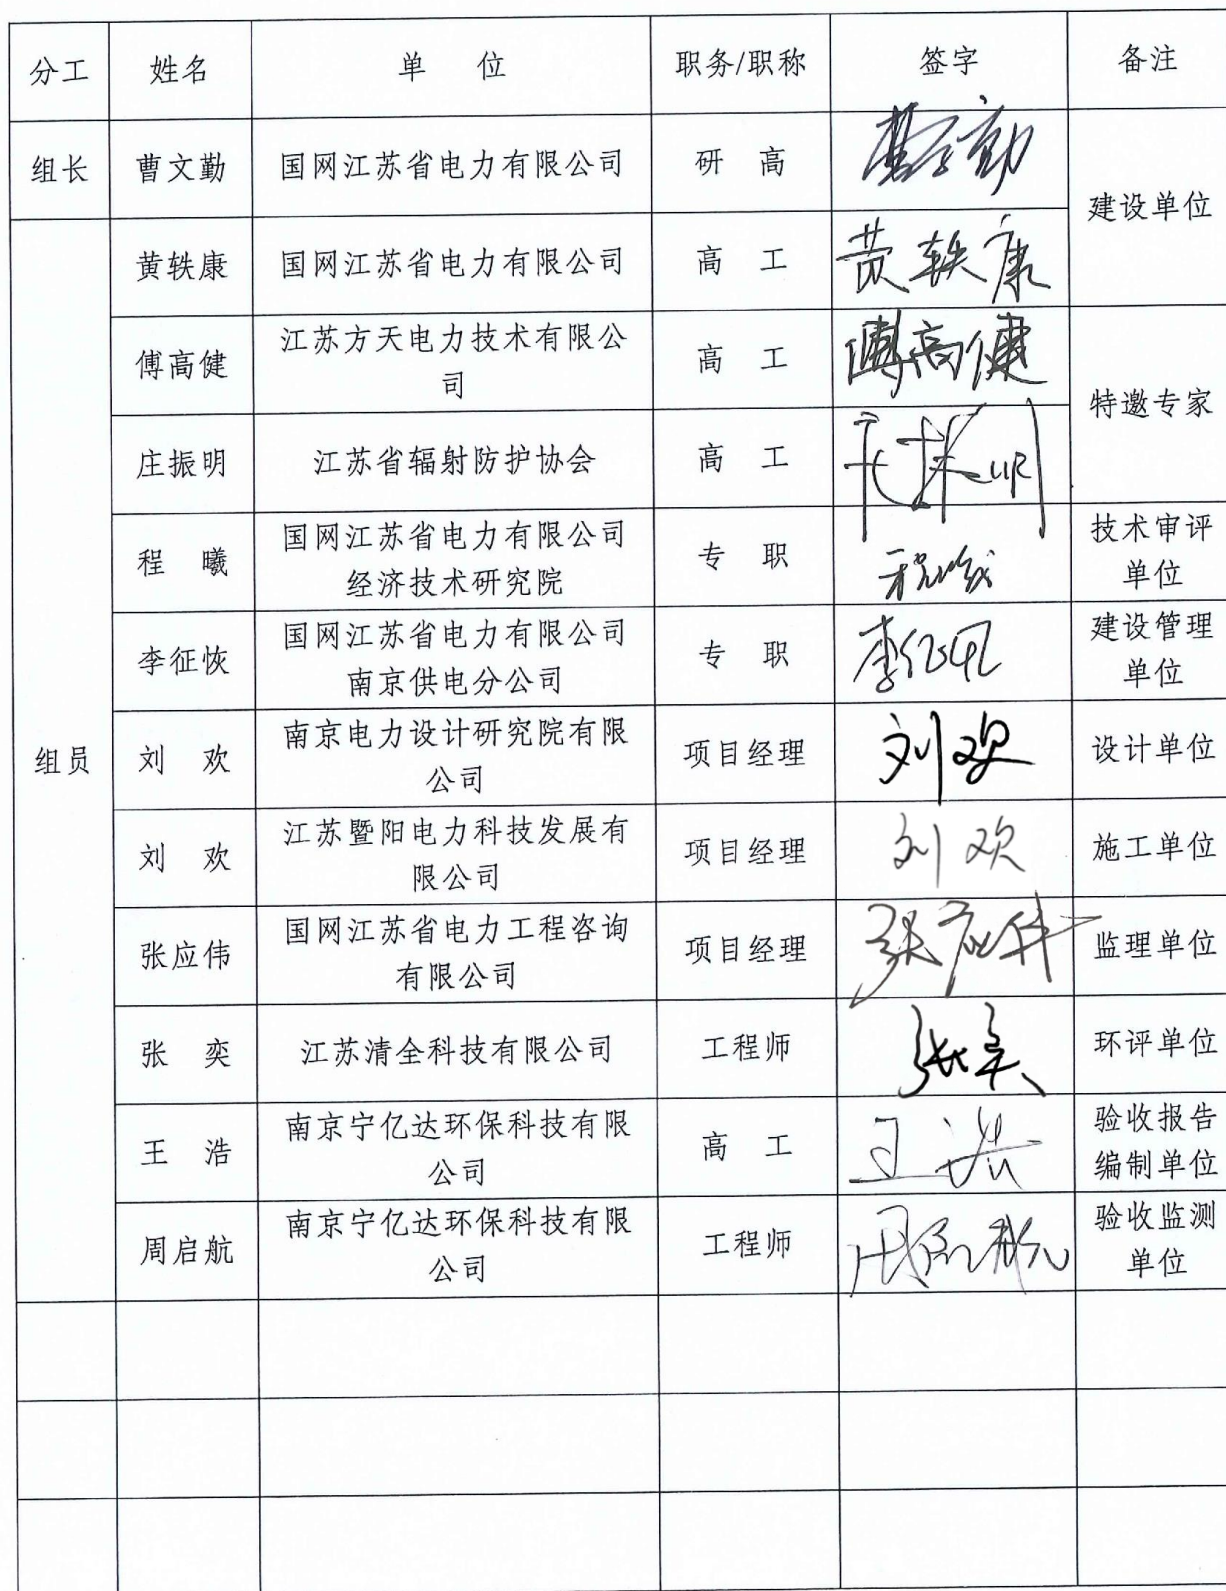 分工 姓名 单 位 职务/职称 签字 备注
组长 曹文勤 国网江苏省电力有限公司 研 高 曹文勤
建设单位
黄轶康 国网江苏省电力有限公司 高 工 黄轶康
傅高健 江苏方天电力技术有限公
司 高 工 傅高健
特邀专家
庄振明 江苏省辐射防护协会 高 工 庄振明
程 曦 国网江苏省电力有限公司
经济技术研究院 专 职 程曦 技术审评
单位
李征恢 国网江苏省电力有限公司
南京供电分公司 专 职 李征恢 建设管理
单位
组员
刘 欢 南京电力设计研究院有限
公司 项目经理 刘欢 设计单位
刘 欢 江苏暨阳电力科技发展有
限公司 项目经理 刘欢 施工单位
张应伟 国网江苏省电力工程咨询
有限公司 项目经理 张应伟 监理单位
张 奕 江苏清全科技有限公司 工程师 张奕 环评单位
王 浩 南京宁亿达环保科技有限
公司 高 工 王浩 验收报告
编制单位
周启航 南京宁亿达环保科技有限
公司 工程师 周启航 验收监测
单位